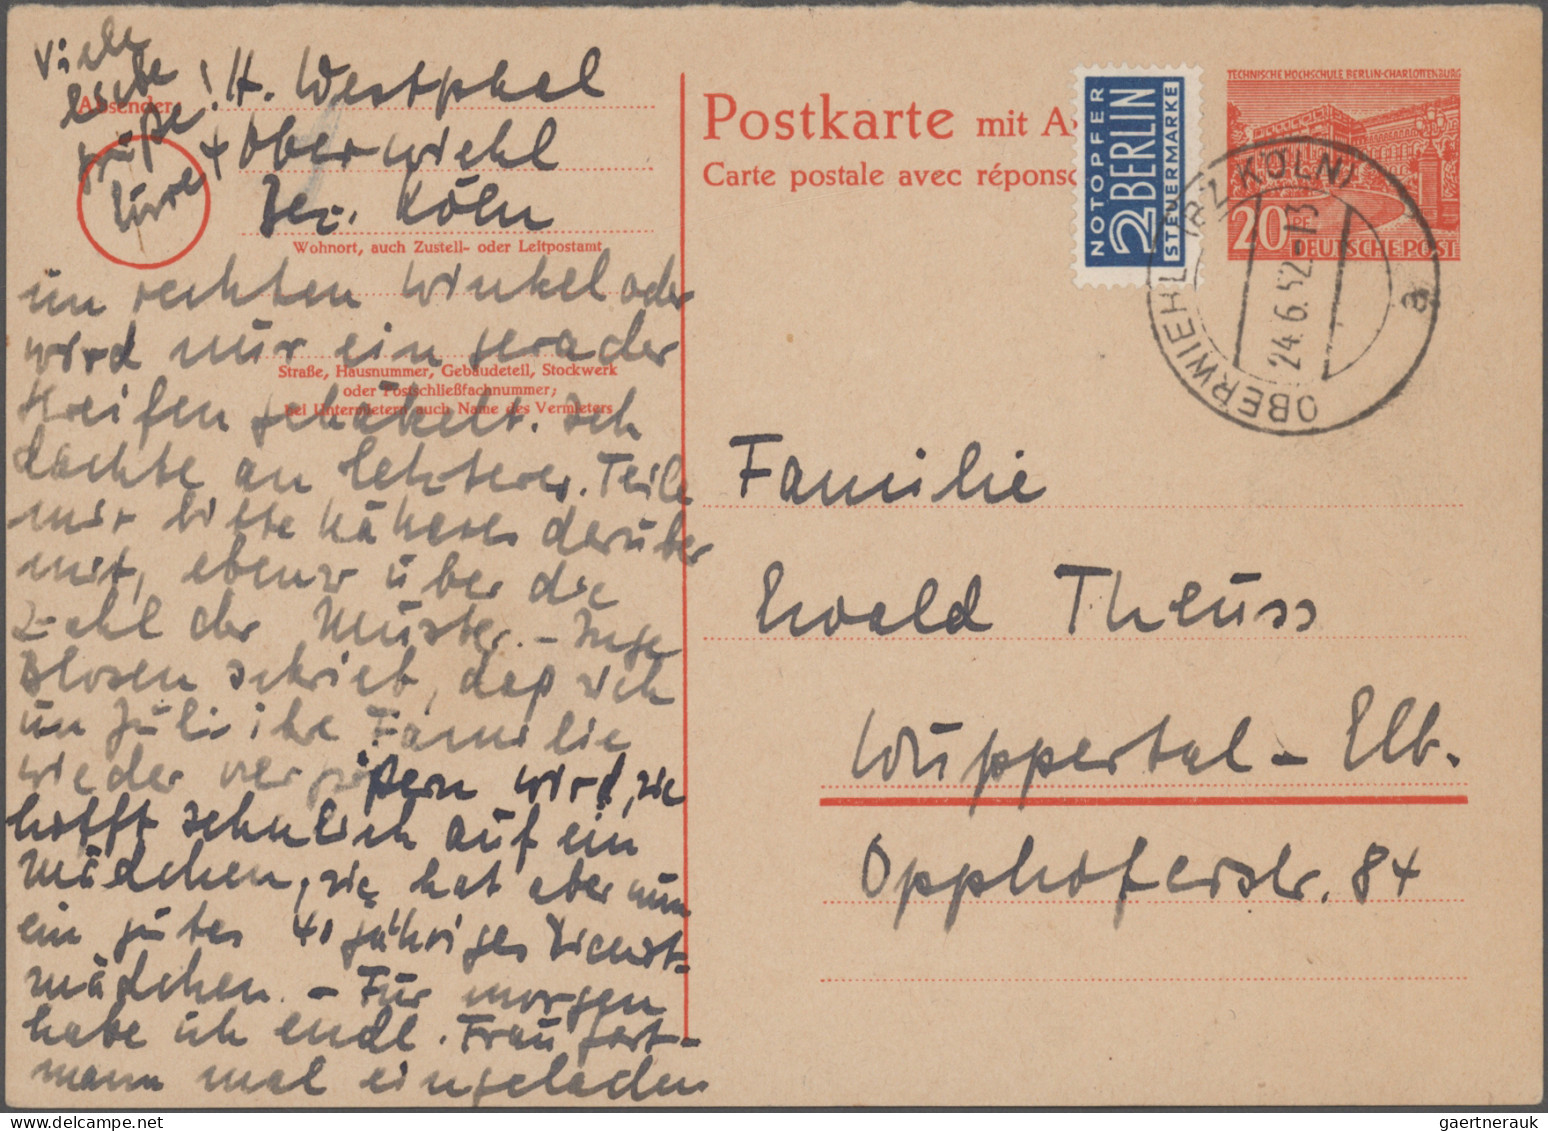 viele
liebe
Grüße!
Eure
Absender:
H. Westphal
Oberwiehl
Bez. Köln
Wohnort, auch Zustell- oder Leitpostamt
im rechten Winkel oder
wird nur ein gerader
Straße, Hausnummer, Gebäudeteil, Stockwerk
oder Postschließfachnummer;
bei Untermietern auch Name des Vermieters
Streifen gehäkelt. Ich
dachte an letzteres. Teile
mir bitte Näheres darüber
mit, ebenso über die
Zahl der Muster. – Inge
Blosen schrieb, daß sich
im Juli ihre Familie
wieder vergrößern wird, sie
hofft sehnlich auf ein
Mädchen, sie hat aber nun
ein gutes 40 jähriges Dienst-
mädchen. – Für morgen
habe ich endl. Frau Fort-
mann mal eingeladen
Postkarte mit A
Carte postale avec réponse
NOTOPFER
2 BERLIN
STEUERMARKE
TECHNISCHE HOCHSCHULE BERLIN-CHARLOTTENBURG
20 PF
DEUTSCHE POST
OBERWIEHL (BZ KÖLN)
24.6.52.-13
a
Familie
Ewald Theuss
Wuppertal – Elb.
Opphoferstr. 84
gaertnerauk